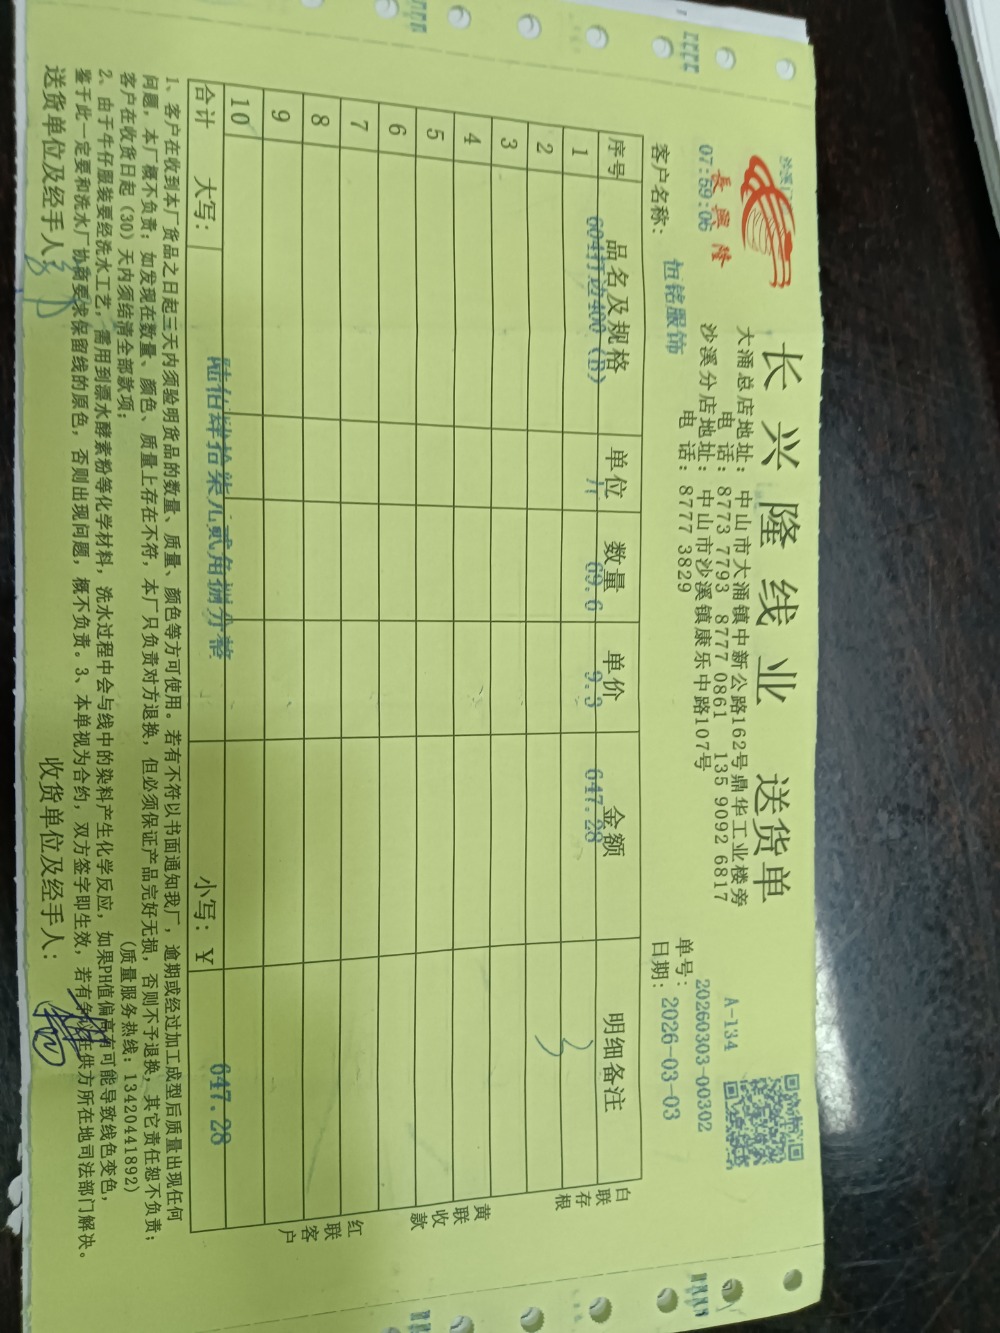 長興隆
长兴隆线业 送货单
大涌总店地址：中山市大涌镇中新公路162号鼎华工业楼旁
电话：8773 7793 8777 0861 135 9092 6817
沙溪分店地址：中山市沙溪镇康乐中路107号
电话：8777 3829
A-134
07:59:06
单号：20260303-00302
客户名称：恒铭服饰
日期：2026-03-03
序号 品名及规格 单位 数量 单价 金额 明细备注
1 604打边400（B） 斤 69.6 9.3 647.28
2
3
4
5
6
7
8
9
10
合计 大写：陆佰肆拾柒元贰角捌分整 小写：￥ 647.28
白联存根
黄联收款
红联客户
1、客户在收到本厂货品之日起三天内须验明货品的数量、质量、颜色等方可使用。若有不符以书面通知我厂，逾期或经过加工成型后质量出现任何
问题，本厂概不负责；如发现在数量、颜色、质量上存在不符，本厂只负责对方退换，但必须保证产品完好无损，否则不予退换，其它责任恕不负责；
客户在收货日起（30）天内须结清全部款项； （质量服务热线：13420441892）
2、由于牛仔服装要经洗水工艺，需用到漂水酵素粉等化学材料，洗水过程中会与线中的染料产生化学反应，如果PH值偏高有可能导致线色变色，
鉴于此一定要和洗水厂协商要求保留线的原色，否则出现问题，概不负责。3、本单视为合约，双方签字即生效，若有争议在供方所在地司法部门解决。
送货单位及经手人： 收货单位及经手人：